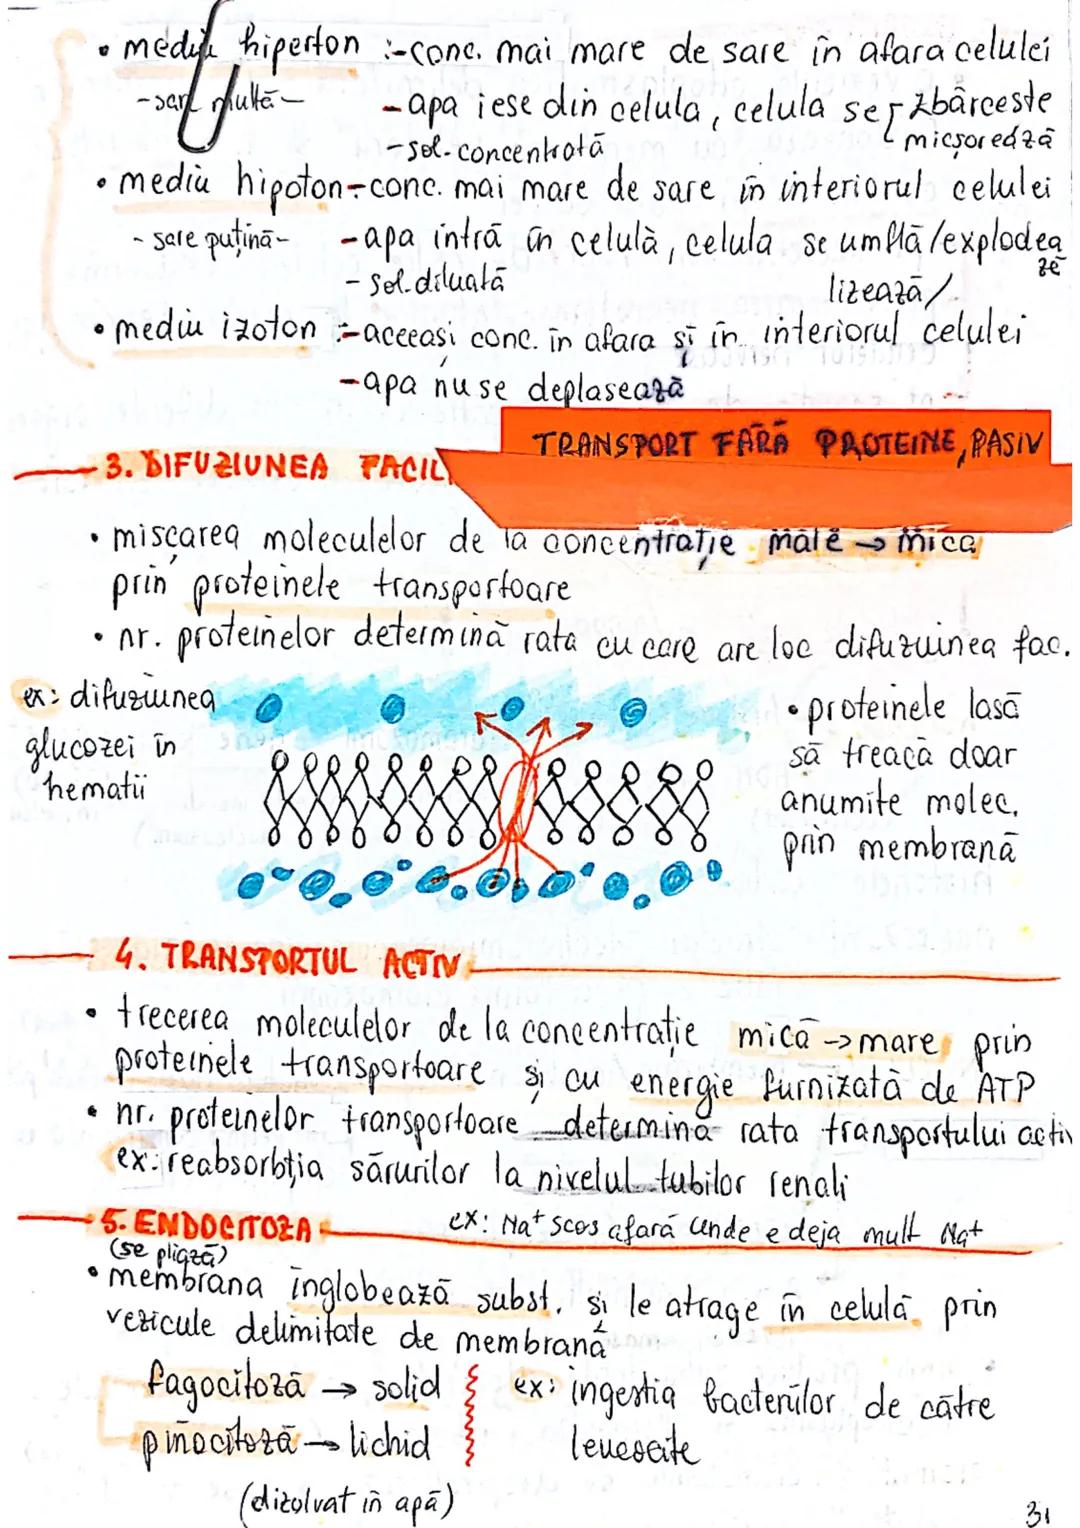 • mediu hiperton :- conc. mai mare de sare în afara celulei
- sare multă -
- apa iese din celula, celula se zbârceste
micșorează
- sol. concentrată
• mediu hipoton - conc. mai mare de sare în interiorul celulei
- sare puțină -
- apa intră în celulă, celula se umflă/explodea
ză
- sol. diluată
lizează/
• mediu izoton :- aceeași conc. în afara și în interiorul celulei
- apa nu se deplasează
TRANSPORT FĂRĂ PROTEINE, PASIV
3. DIFUZIUNEA FACIL
• mișcarea moleculelor de la concentrație mare → mica
prin proteinele transportoare
• nr. proteinelor determină rata cu care are loc difuzuinea fac.
ex: difuziunea
glucozei în
hematii
• proteinele lasă
să treacă doar
anumite molec.
prin membrană
4. TRANSPORTUL ACTIV
• trecerea moleculelor de la concentrație mică → mare prin
proteinele transportoare și cu energie furnizată de ATP
• nr. proteinelor transportoare determină rata transportului activ
ex: reabsorbția sărurilor la nivelul tubilor renali
ex: Na+ scos afară unde e deja mult Na+
5. ENDOCITOZA
(se pliază)
• membrana înglobează subst. și le atrage în celulă prin
vezicule delimitate de membrană
fagocitoză → solid
ex: ingestia bacteriilor de către
leucocite
pinocitoză → lichid
(dizolvat în apă)
31